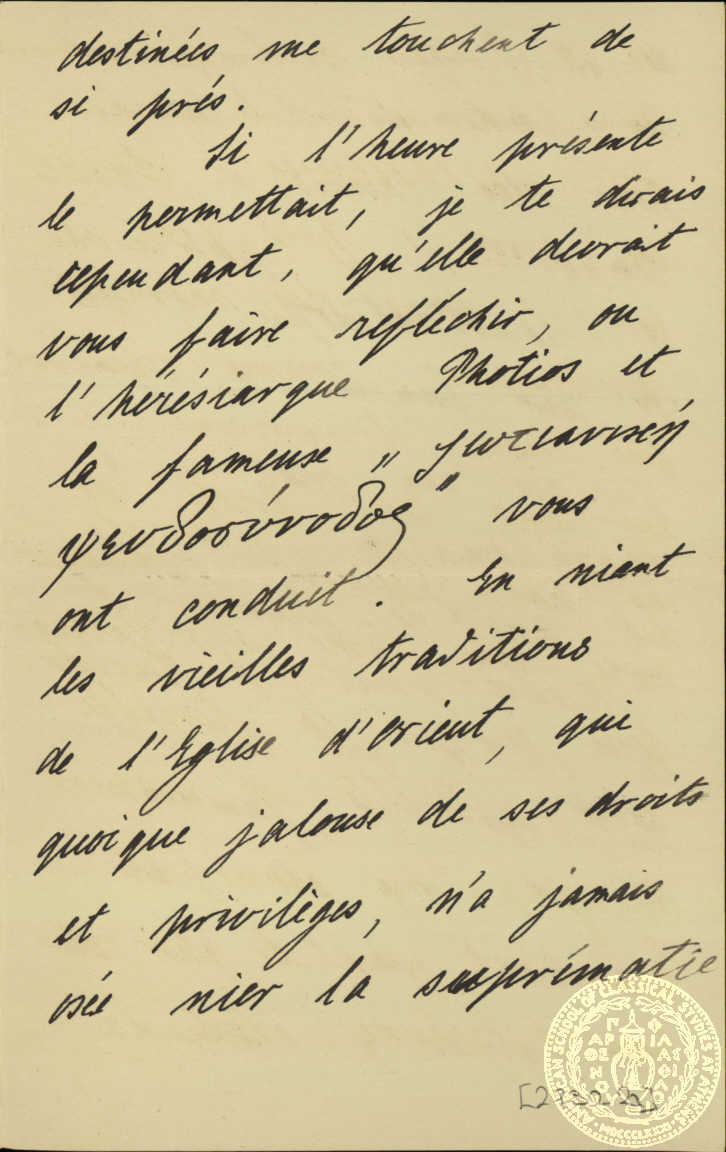 destinées me touchent de
si prés.
Si l'heure présente
le permettait, je te dirais
cependant, qu'elle devrait
vous faire refléchir, ou
l'hérésiarque Photios et
la fameuse „φωτιανική
ψευδοσύνοδος" vous
ont conduit. En niant
les vieilles traditions
de l'Eglise d'Orient, qui
quoique jalouse de ses droits
et privilèges, n'a jamais
osée nier la suprématie
AMERICAN SCHOOL OF CLASSICAL STUDIES AT ATHENS
MDCCCLXXXI
ΠΑΡΘΕΝΟΥ ΦΙΛΑΣ ΦΙΛΟ